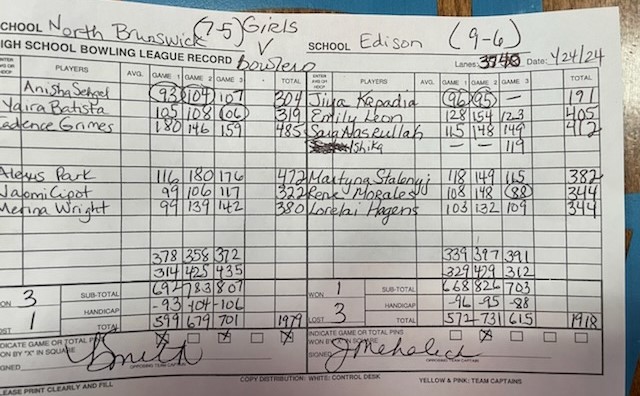 SCHOOL North Brunswick (7-5) Girls V SCHOOL Edison (9-6)
HIGH SCHOOL BOWLING LEAGUE RECORD Bowlers Lanes: Date: 1/24/24
ENTER AVG OR HDCP PLAYERS AVG. GAME 1 GAME 2 GAME 3 TOTAL ENTER AVG OR HDCP PLAYERS AVG. GAME 1 GAME 2 GAME 3 TOTAL
Anisha Sehgel 93 104 107 304 Jiya Kapadia 96 95 — 191
Yaira Batista 105 108 106 319 Emily Leon 128 154 123 405
Cadence Grimes 180 146 159 485 115 148 149 412
Ishika — — 119
Alexus Park 116 180 176 472 Martyna 118 149 115 382
Naomi Cipot 99 106 117 322 Rene Morales 108 148 88 344
Merina Wright 99 139 142 380 Lorelai Hagens 103 132 109 344
378 358 372 339 397 391
314 425 435 329 429 312
WON 3 SUB-TOTAL 692 783 807 WON 1 SUB-TOTAL 668 826 703
HANDICAP -93 -104 -106 HANDICAP -96 -95 -88
LOST 1 TOTAL 599 679 701 1979 LOST 3 TOTAL 572 731 615 1918
INDICATE GAME OR TOTAL PINS WON BY "X" IN SQUARE X X X INDICATE GAME OR TOTAL PINS WON BY "X" IN SQUARE X
SIGNED SIGNED
OPPOSING TEAM CAPTAIN OPPOSING TEAM CAPTAIN
PLEASE PRINT CLEARLY AND FILL COPY DISTRIBUTION: WHITE: CONTROL DESK YELLOW & PINK: TEAM CAPTAINS